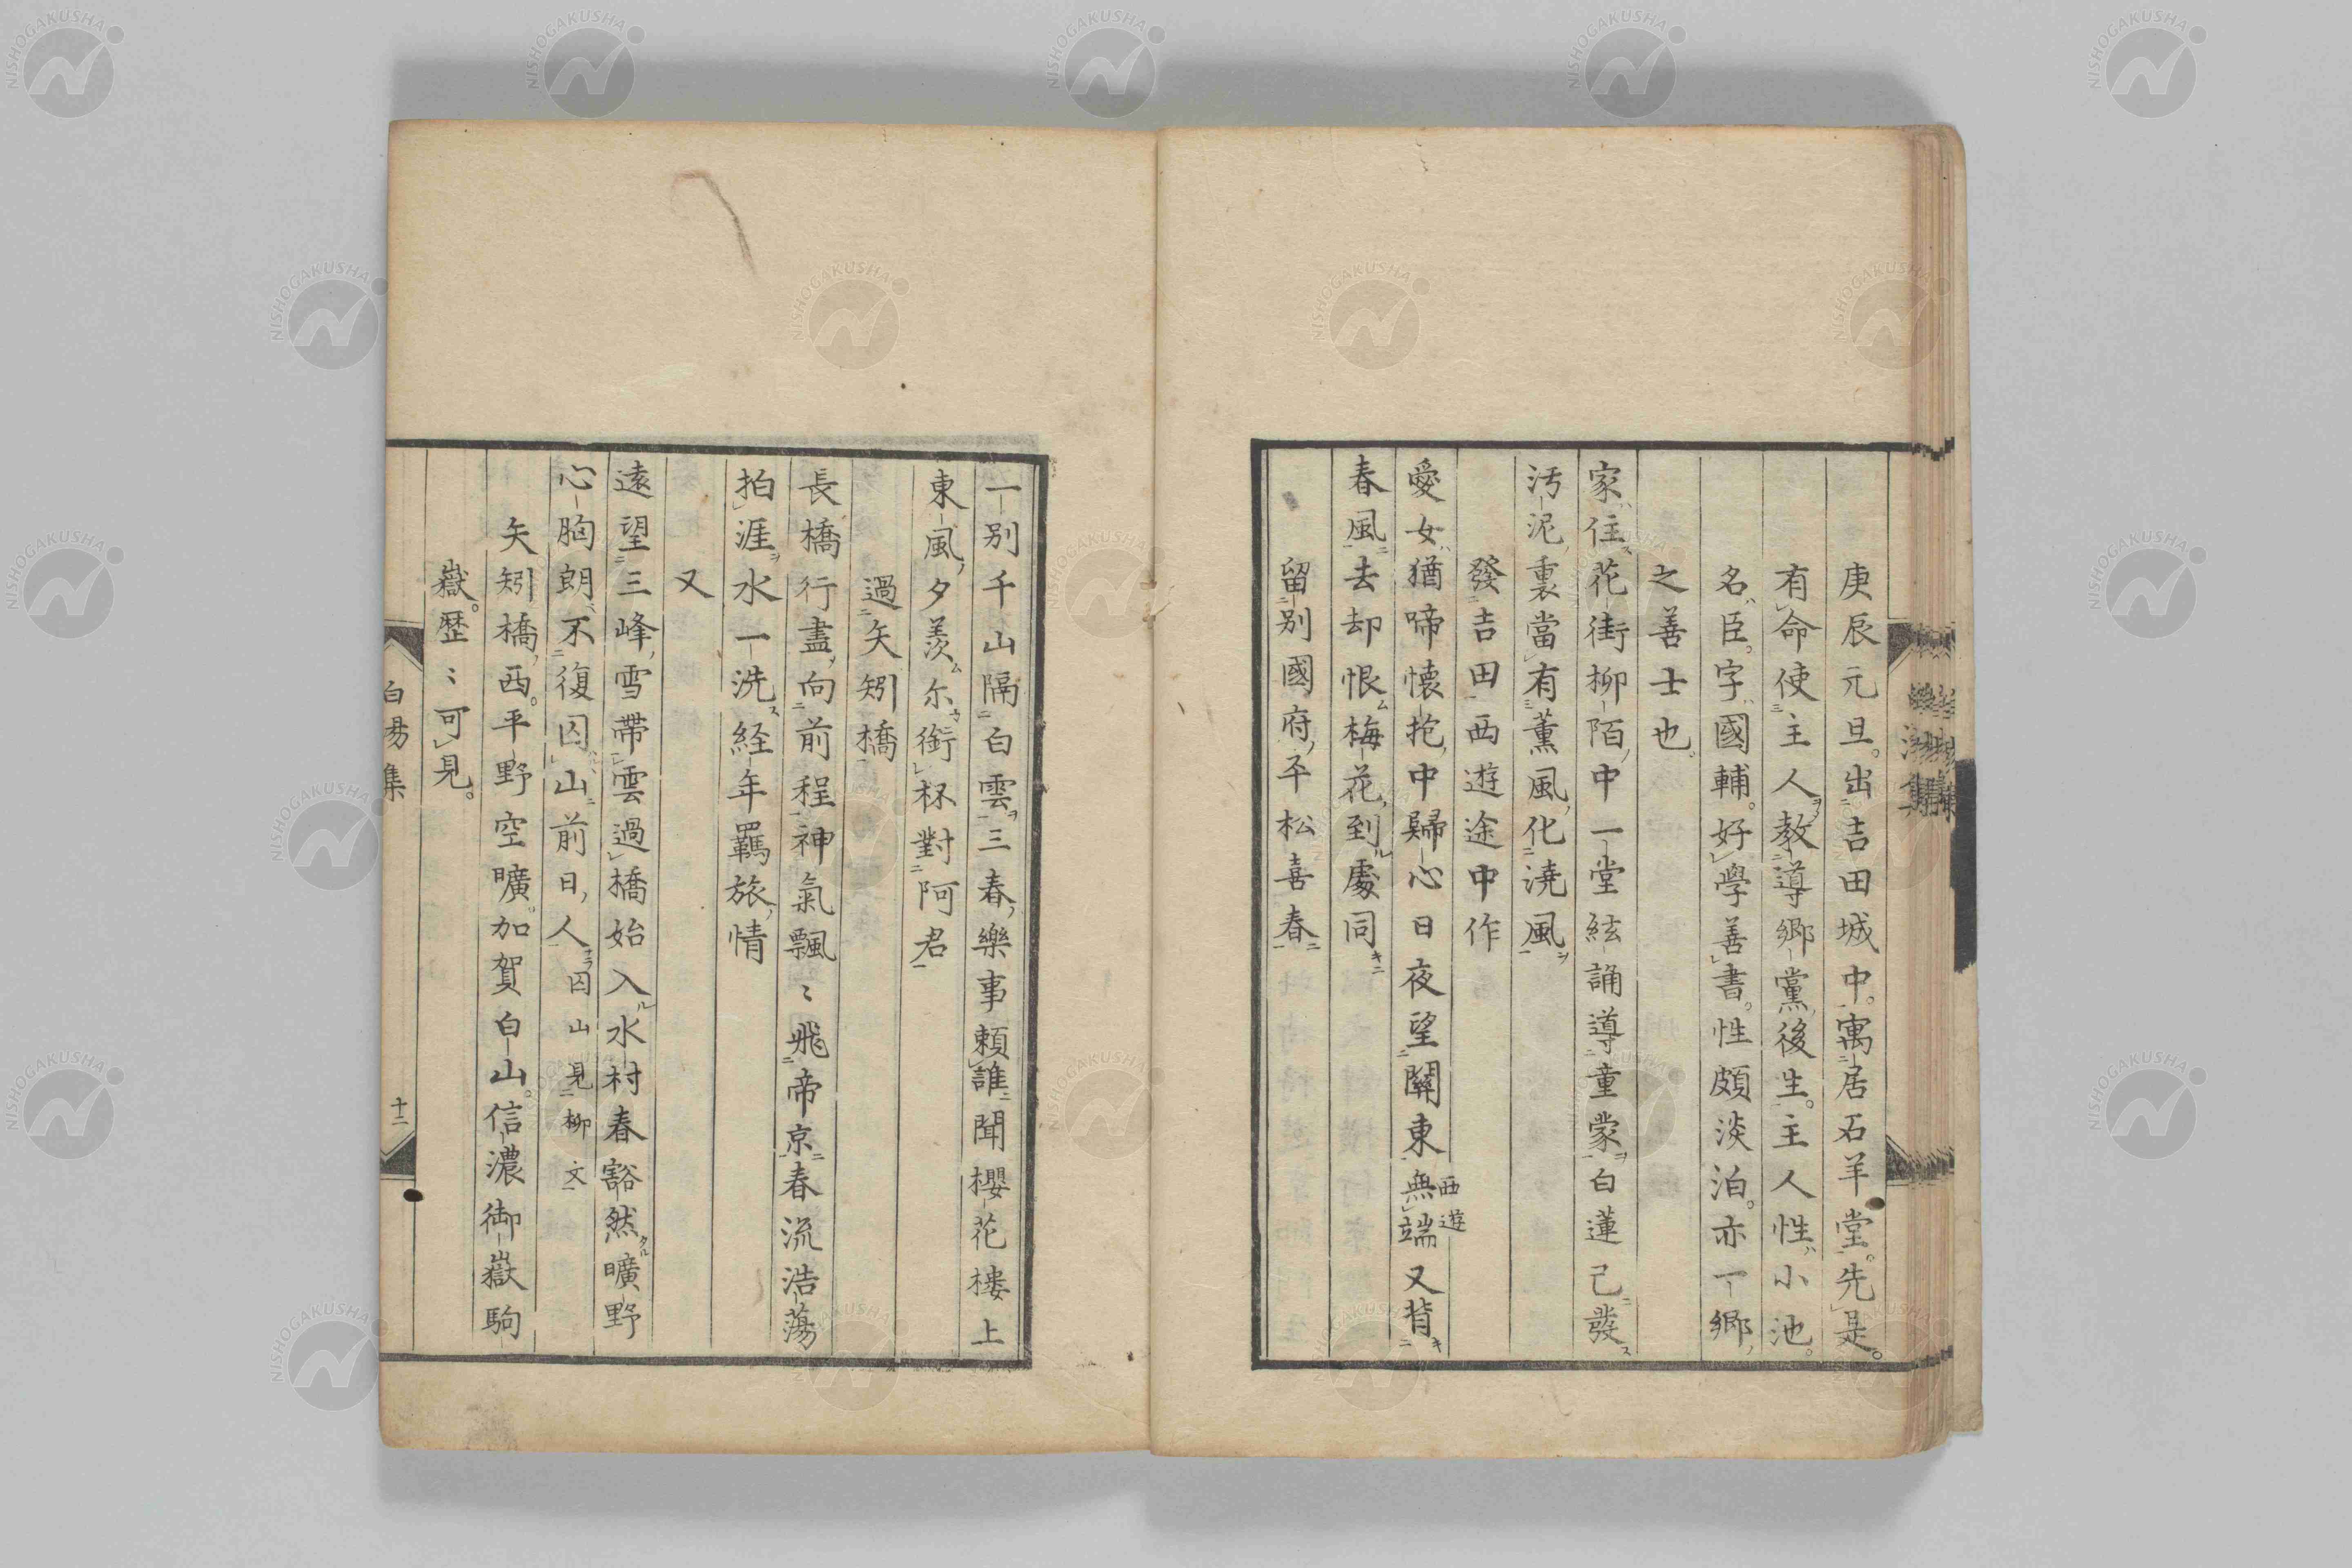 庚辰元旦。出吉田城中。寓居石羊堂。先是。
有命使主人教導郷黨後生。主人性小池。
名臣。字國輔。好學善書。性頗淡泊。亦一郷
之善士也
家住花街柳陌中一堂絃誦導童蒙白蓮已發
汚泥裏當有薫風化澆風
發吉田西遊途中作
愛女猶啼懷抱中歸心日夜望關東無端又背
西遊
春風去却恨梅花到處同
留別國府平松喜春
一別千山隔白雲三春樂事頼誰聞櫻花樓上
東風夕羨尓銜杯對阿君
過矢矧橋
長橋行盡向前程神氣飄〻飛帝京春流浩蕩
拍涯水一洗経年羈旅情
又
遠望三峰雪帶雲過橋始入水村春豁然曠野
心胸朗不復囚山前日人囚山見柳文
矢矧橋西。平野空曠。加賀白山。信濃御嶽駒
嶽。歴〻可見。
白昜集
十二
NISHOGAKUSHA